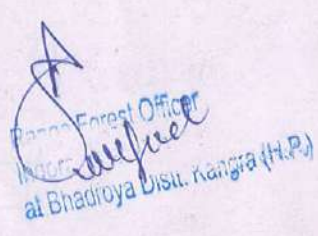 Range Forest Officer
Indora
at Bhadroya Distt. Kangra (H.P.)